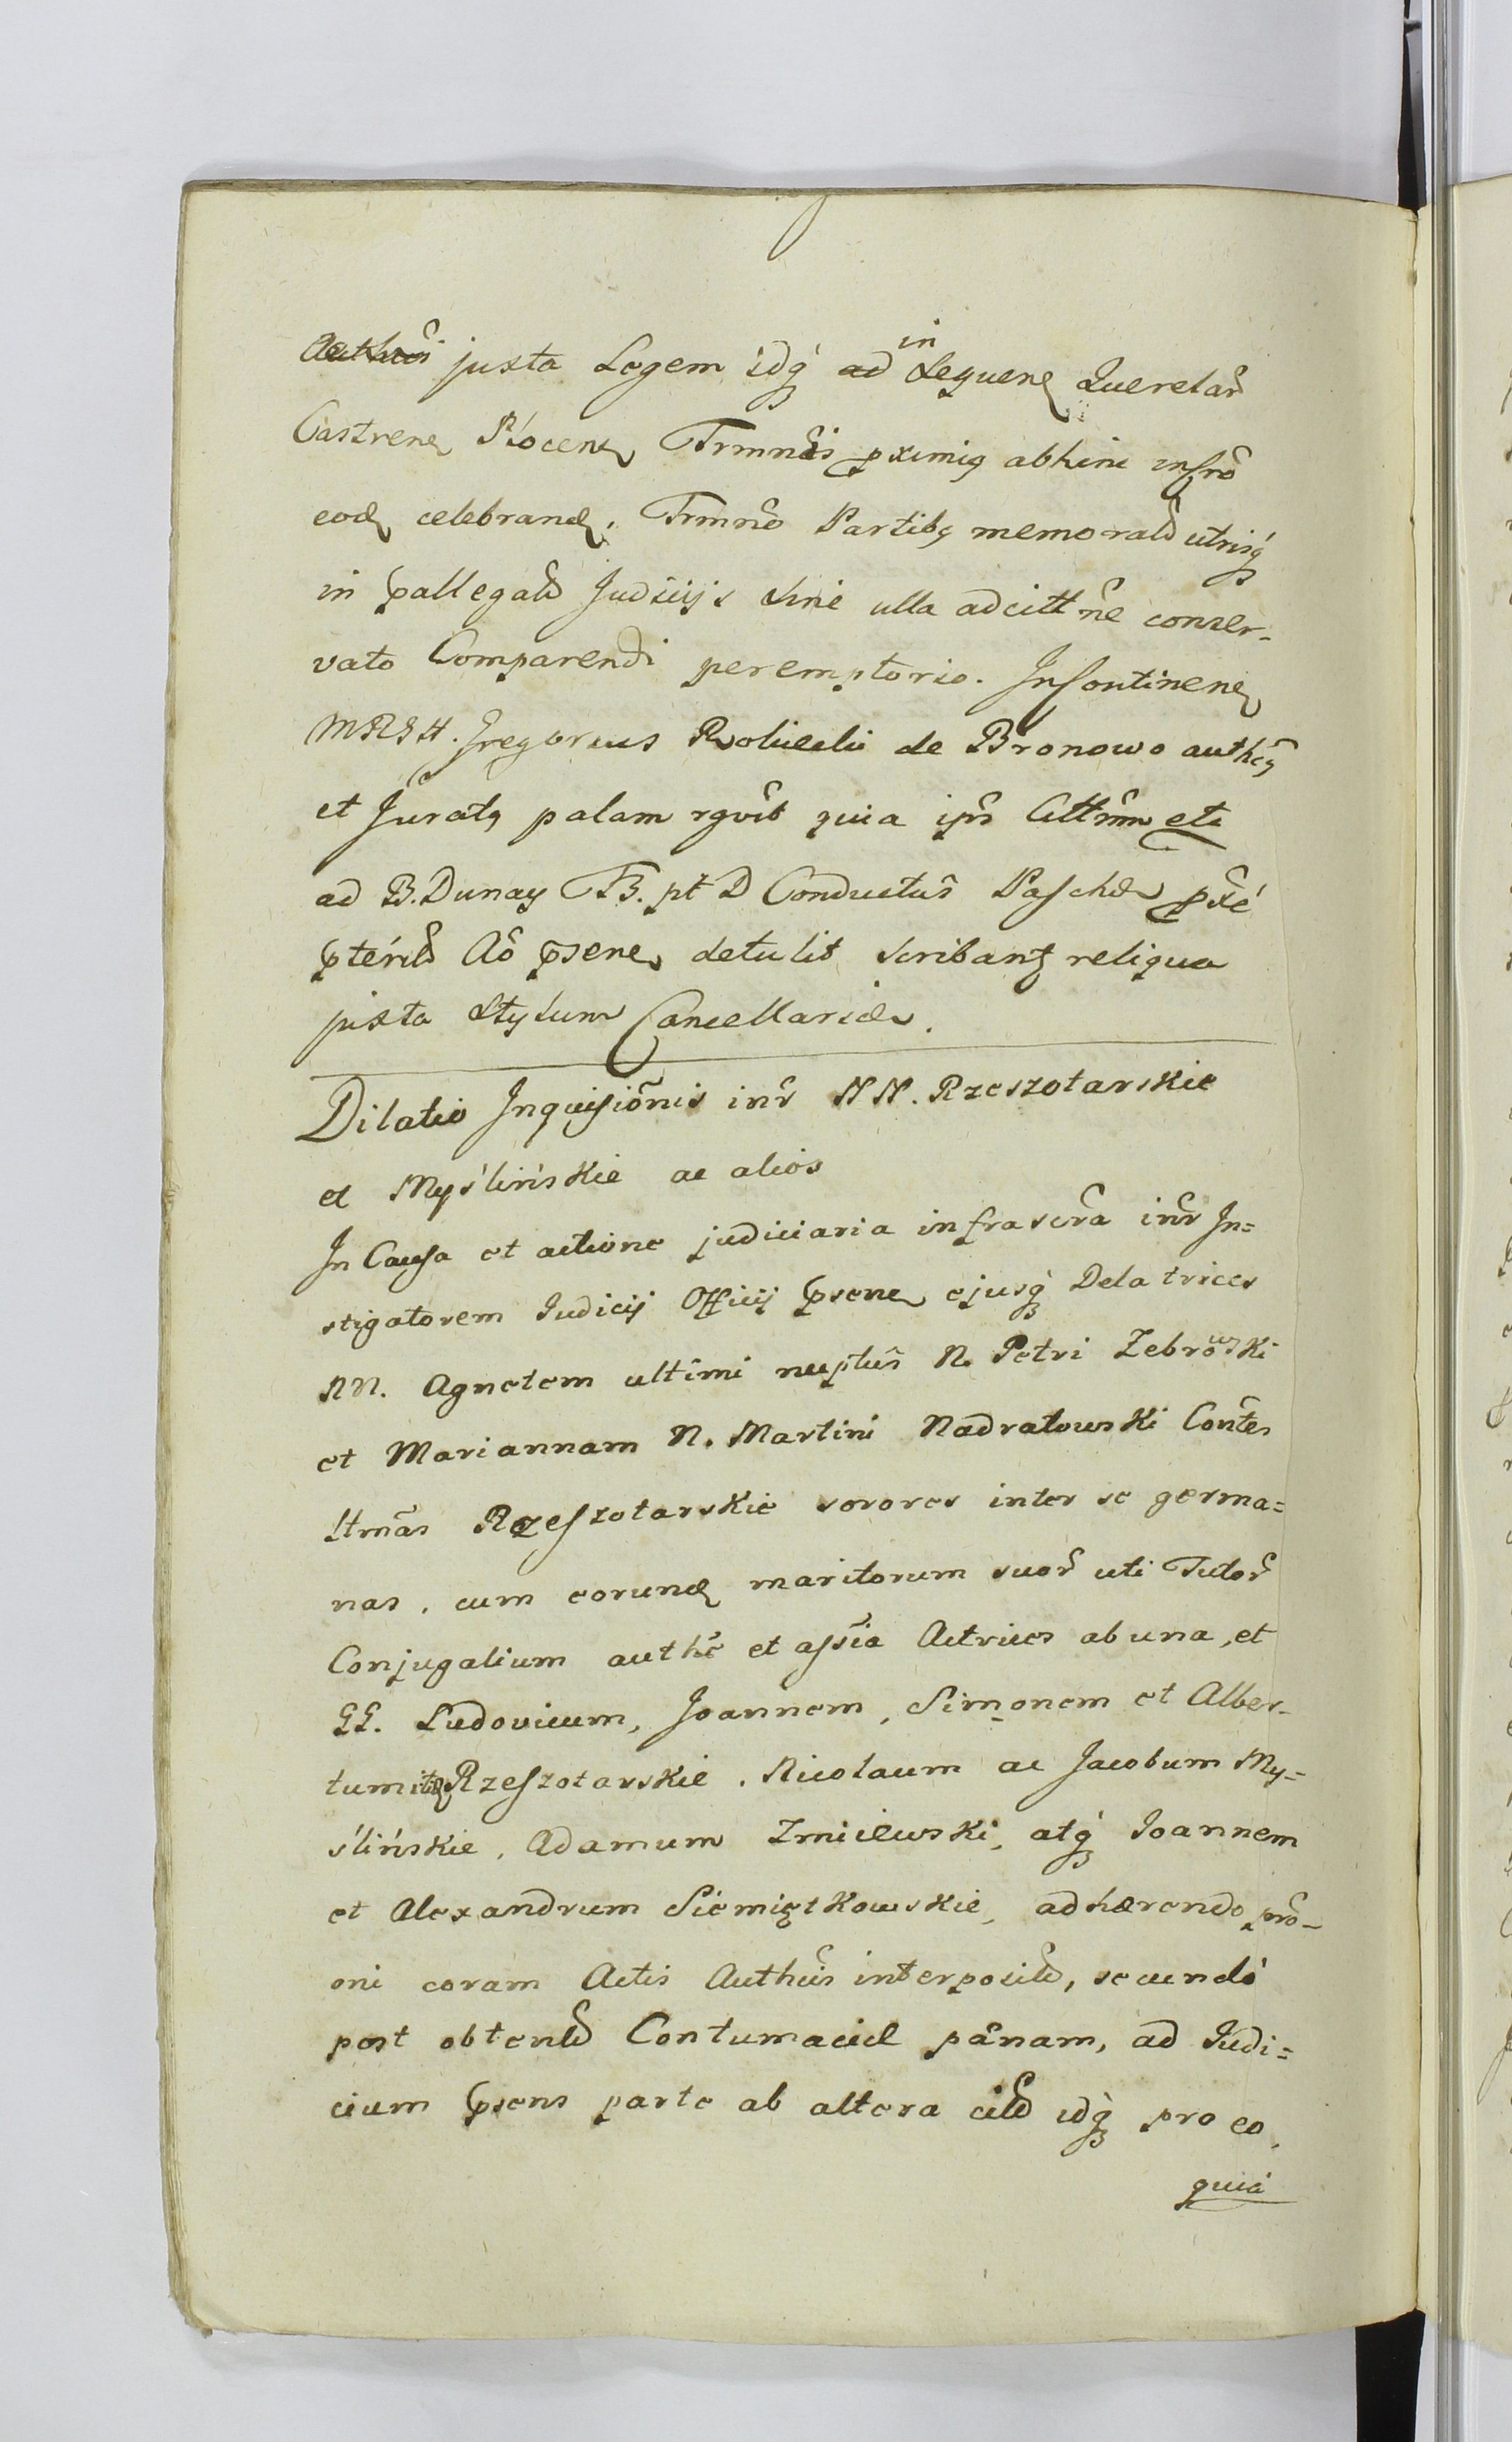 juxta Legem idq́ in Sequene Querelar̃
Castrene Plocens Trmnis pximis abhinc infrõ
eode celebrand. Trmno Partibꝫ memorald utrisq́
in p̃allegatd Judicijs sine ulla adcittne conser-
vato Comparendi peremptorio. In continene
MRSH. Gregorius de Bronowo authẽ
et Juratꝫ palam rgvit quia ipŝ Cittm̃ etc
ad B. Dunay pt D Conductuŝ Paschæ pxe
p̃terit Aô p̃sene detulit scribantꝫ reliqua
juxta Stylum Cancellariæ.
Dilatio Inquisiõnis inr̃ NN. Rzeszotarskie
et Myślińskie ac alios
In Causa et actione judiciaria infrascr̃a inr̃ In=
stigatorem Judicij Officij p̃sene ejusq́ Delatrices
NN. Agnetem ultimi nuptuŝ N. Petri Zebrowski
et Mariannam N. Martini Nadratowski Contẽs
ltmãs Rzeszotarskie sorores inter se germa=
nas, cum eorund maritorum suor̃ uti Tutor̃
Conjugalium authẽ et assĩa Actrices ab una, et
GG. Ludovicum, Joannem, Simonem et Alber-
tum itd Rzeszotarskie, Nicolaum ac Jacobum My=
ślińskie, Adamum Zmiiewski, atq́ Joannem
et Alexandrum Siemiątkowskie, adhærendo prõ-
oni coram Actis Authcis̃ interposild, secundò
post obtentd Contumaciæ pænam, ad Judi=
cium p̃sens parte ab altera citd idq́ pro eo,
quià